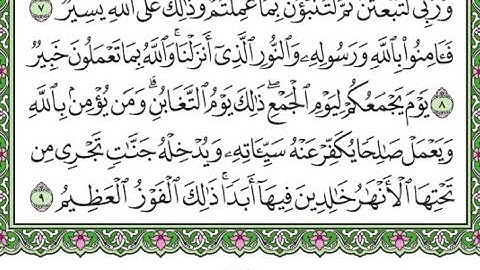 وَرَبِّي لَتُبْعَثُنَّ ثُمَّ لَتُنَبَّؤُنَّ بِمَا عَمِلْتُمْ وَذَٰلِكَ عَلَى ٱللَّهِ يَسِيرٌ ٧
فَـَٔامِنُوا۟ بِٱللَّهِ وَرَسُولِهِۦ وَٱلنُّورِ ٱلَّذِىٓ أَنزَلْنَا ۚ وَٱللَّهُ بِمَا تَعْمَلُونَ خَبِيرٌ
٨ يَوْمَ يَجْمَعُكُمْ لِيَوْمِ ٱلْجَمْعِ ۖ ذَٰلِكَ يَوْمُ ٱلتَّغَابُنِ ۗ وَمَن يُؤْمِنۢ بِٱللَّهِ
وَيَعْمَلْ صَـٰلِحًا يُكَفِّرْ عَنْهُ سَيِّـَٔاتِهِۦ وَيُدْخِلْهُ جَنَّـٰتٍ تَجْرِى مِن
تَحْتِهَا ٱلْأَنْهَـٰرُ خَـٰلِدِينَ فِيهَآ أَبَدًا ۚ ذَٰلِكَ ٱلْفَوْزُ ٱلْعَظِيمُ ٩